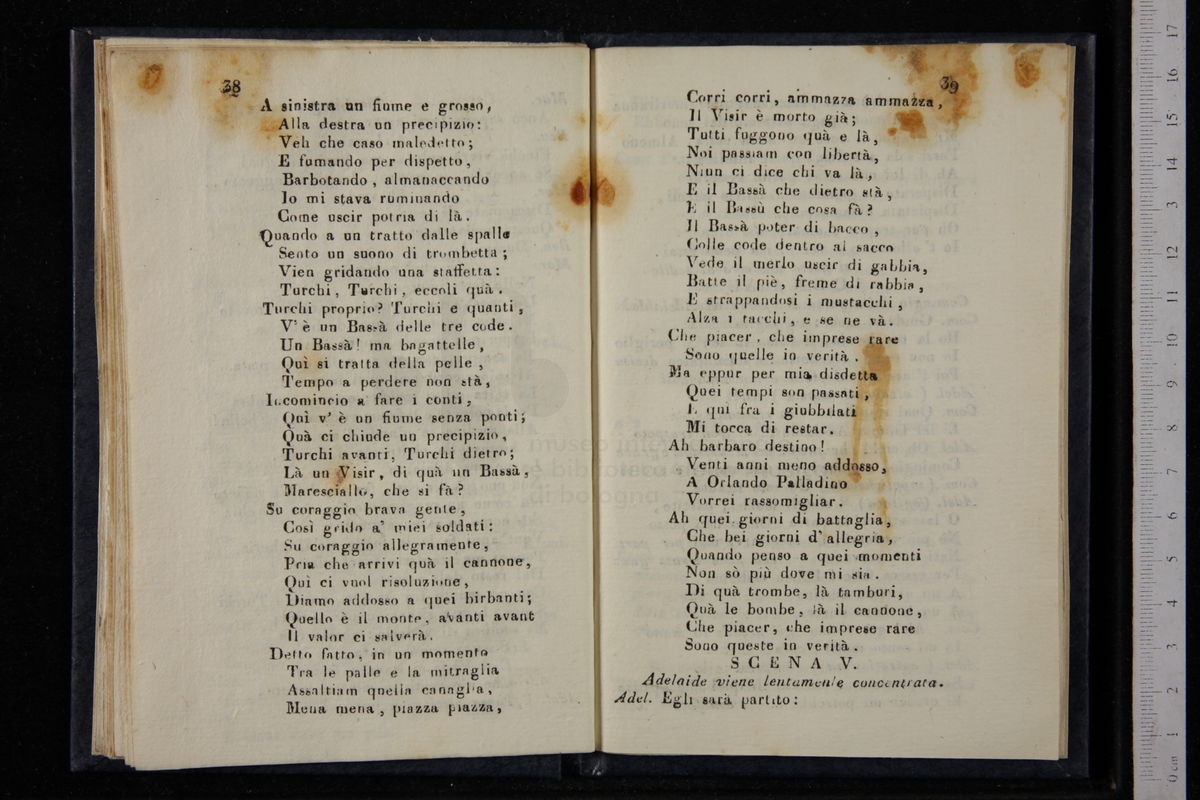 38
A sinistra un fiume e grosso,
Alla destra un precipizio:
Veh che caso maledetto;
E fumando per dispetto,
Barbotando, almanaccando
Io mi stava ruminando
Come uscir potria di là.
Quando a un tratto dalle spalle
Sento un suono di trombetta;
Vien gridando una staffetta:
Turchi, Turchi, eccoli quà.
Turchi proprio? Turchi e quanti,
V' è un Bassà delle tre code.
Un Bassà! ma bagattelle,
Quì si tratta della pelle,
Tempo a perdere non stà,
Incomincio a fare i conti,
Quì v' è un fiume senza ponti;
Quà ci chiude un precipizio,
Turchi avanti, Turchi dietro;
Là un Visir, di quà un Bassà,
Maresciallo, che si fà?
Su coraggio brava gente,
Così grido a' miei soldati:
Su coraggio allegramente,
Pria che arrivi quà il cannone,
Qui ci vuol risoluzione,
Diamo addosso a quei birbanti;
Quello è il monte, avanti avant
Il valor ci salverà.
Detto fatto, in un momento
Tra le palle e la mitraglia
Assaltiam quella canaglia,
Mena mena, piazza piazza,
39
Corri corri, ammazza ammazza,
Il Visir è morto già;
Tutti fuggono quà e là,
Noi passiam con libertà,
Niun ci dice chi va là,
E il Bassà che dietro stà,
E il Bassù che cosa fà?
Il Bassà poter di bacco,
Colle code dentro al sacco
Vede il merlo uscir di gabbia,
Batte il piè, freme di rabbia,
E strappandosi i mustacchi,
Alza i tacchi, e se ne và.
Che piacer, che imprese rare
Sono quelle in verità.
Ma eppur per mia disdetta
Quei tempi son passati,
E qui fra i giubbilati
Mi tocca di restar.
Ah barbaro destino!
Venti anni meno addosso,
A Orlando Palladino
Vorrei rassomigliar.
Ah quei giorni di battaglia,
Che bei giorni d' allegria,
Quando penso a quei momenti
Non sò più dove mi sia.
Di quà trombe, là tamburi,
Quà le bombe, là il cannone,
Che piacer, che imprese rare
Sono queste in verità.
SCENA V.
Adelaide viene lentamente concentrata.
Adel. Egli sarà partito:
0 cm 1 2 3 4 5 6 7 8 9 10 11 12 13 14 15 16 17